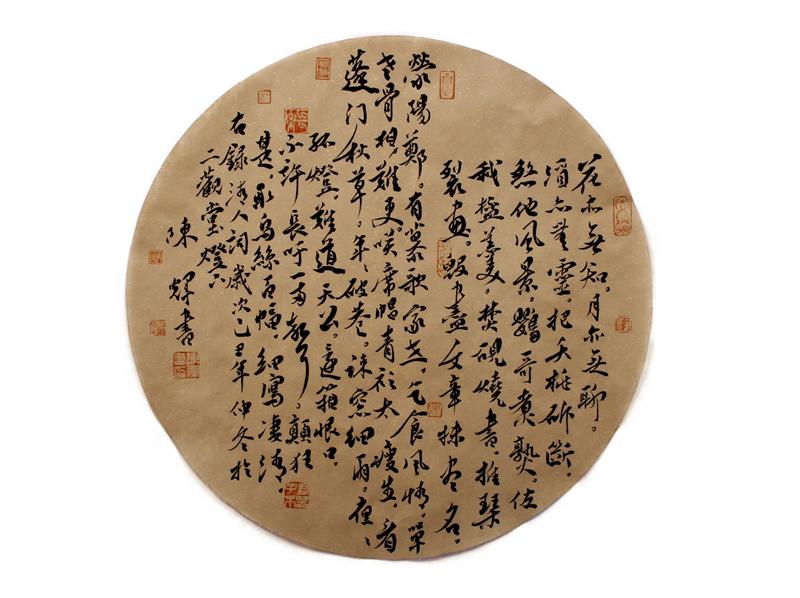 花亦無知。月亦無聊。
酒亦無靈。把夭桃斫斷。
煞他風景。鸚哥煮熟。佐
我杯羹。焚硯燒書。椎琴
裂畫。毀盡文章抹盡名。
滎陽鄭。有慕歌家世。乞食風情。單
寒骨相難更。笑席帽青衫太瘦生。看
蓬門秋草。年々破巷。疎窓細雨。夜々
孤燈。難道天公。還箝恨口。
不許長吁一兩聲。顛狂
甚。取烏絲百幅。細寫凄清。
右錄清人詞歲次己丑年仲冬於
二觀堂燈下
陳輝書